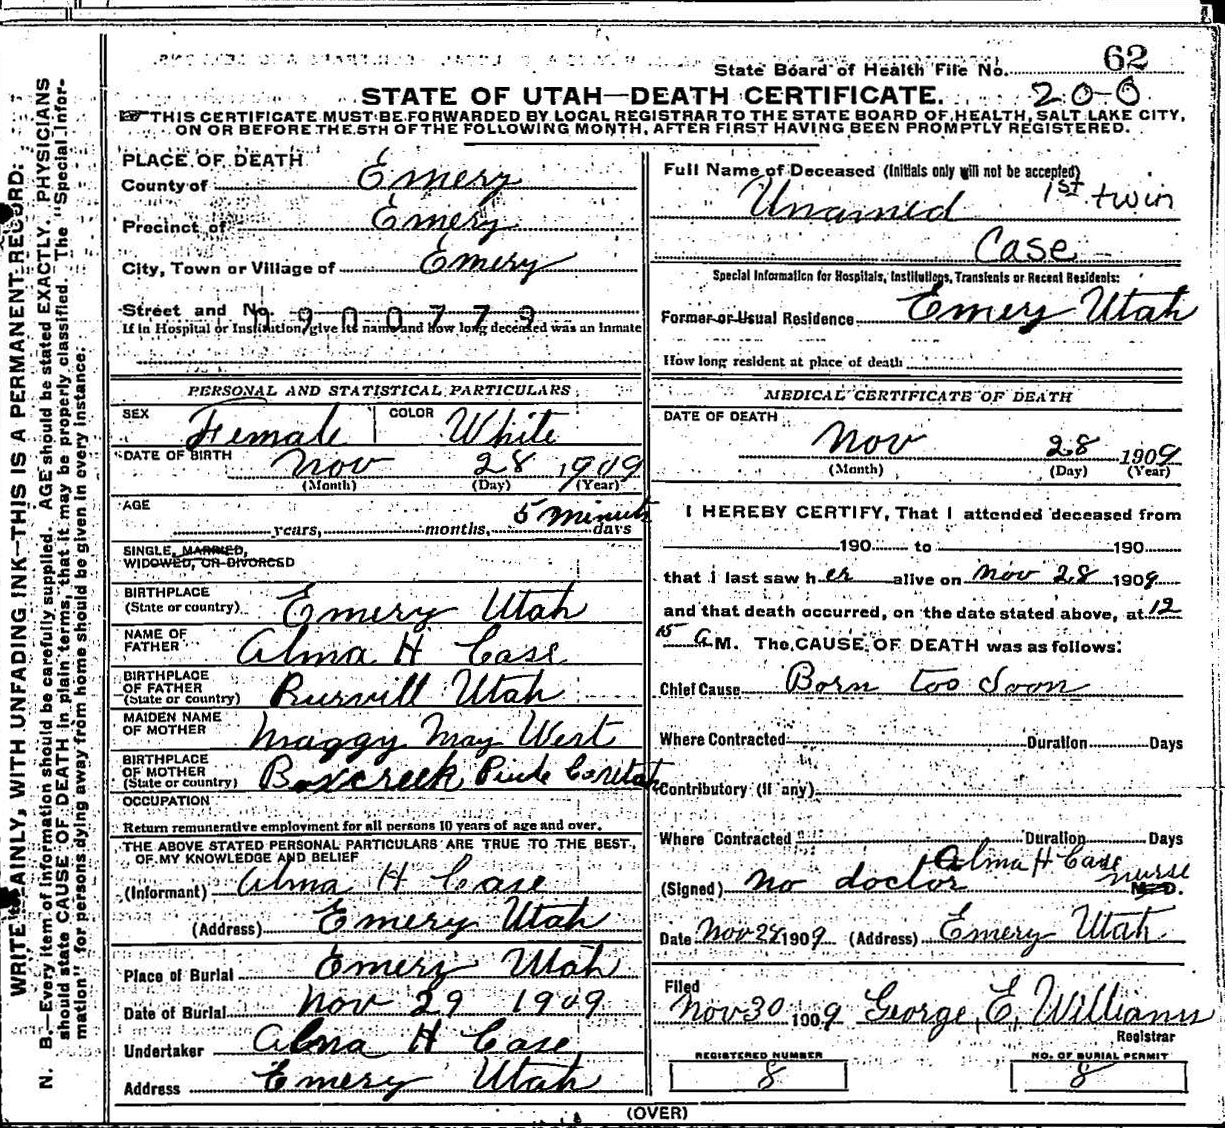 62
State Board of Health File No.
STATE OF UTAH—DEATH CERTIFICATE.
20-0
THIS CERTIFICATE MUST BE FORWARDED BY LOCAL REGISTRAR TO THE STATE BOARD OF HEALTH, SALT LAKE CITY,
ON OR BEFORE THE 5TH OF THE FOLLOWING MONTH, AFTER FIRST HAVING BEEN PROMPTLY REGISTERED.
WRITE PLAINLY, WITH UNFADING INK—THIS IS A PERMANENT RECORD.
N. B.—Every item of information should be carefully supplied. AGE should be stated EXACTLY. PHYSICIANS
should state CAUSE OF DEATH in plain terms, that it may be properly classified. The "Special Infor-
mation" for persons dying away from home should be given in every instance.
PLACE OF DEATH
County of Emery
Precinct of Emery
City, Town or Village of Emery
Street and No. 900779
If in Hospital or Institution, give its name and how long deceased was an inmate
PERSONAL AND STATISTICAL PARTICULARS
SEX Female COLOR White
DATE OF BIRTH Nov 28 1909
(Month) (Day) (Year)
AGE 5 minuts
years, months, days
SINGLE, MARRIED,
WIDOWED, OR DIVORCED
BIRTHPLACE
(State or country) Emery Utah
NAME OF
FATHER Alma H Case
BIRTHPLACE
OF FATHER
(State or country) Burvill Utah
MAIDEN NAME
OF MOTHER Maggy May West
BIRTHPLACE
OF MOTHER
(State or country) Boxcreek Piute Co Utah
OCCUPATION
Return remunerative employment for all persons 10 years of age and over.
THE ABOVE STATED PERSONAL PARTICULARS ARE TRUE TO THE BEST
OF MY KNOWLEDGE AND BELIEF
(Informant) Alma H Case
(Address) Emery Utah
Place of Burial Emery Utah
Date of Burial Nov 29 1909
Undertaker Alma H Case
Address Emery Utah
Full Name of Deceased (Initials only will not be accepted)
Unamed 1st twin
Case
Special Information for Hospitals, Institutions, Transients or Recent Residents:
Former or Usual Residence Emery Utah
How long resident at place of death
MEDICAL CERTIFICATE OF DEATH
DATE OF DEATH
Nov 28 1909
(Month) (Day) (Year)
I HEREBY CERTIFY, That I attended deceased from
190 to 190
that I last saw her alive on Nov 28 1909
and that death occurred, on the date stated above, at 12
15 A M. The CAUSE OF DEATH was as follows:
Chief Cause Born too Soon
Where Contracted Duration Days
Contributory (if any)
Where Contracted Duration Days
Alma H Case
(Signed) no doctor nurse M.D.
Date Nov 28 1909 (Address) Emery Utah
Filed
Nov 30 1909 George E. Williams
Registrar
REGISTERED NUMBER NO. OF BURIAL PERMIT
8 8
(OVER)